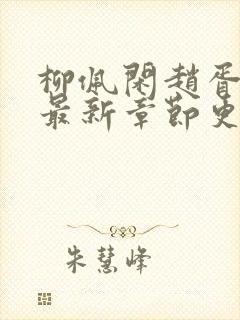 柳佩閑趙胥
最新章節更
朱慧峰